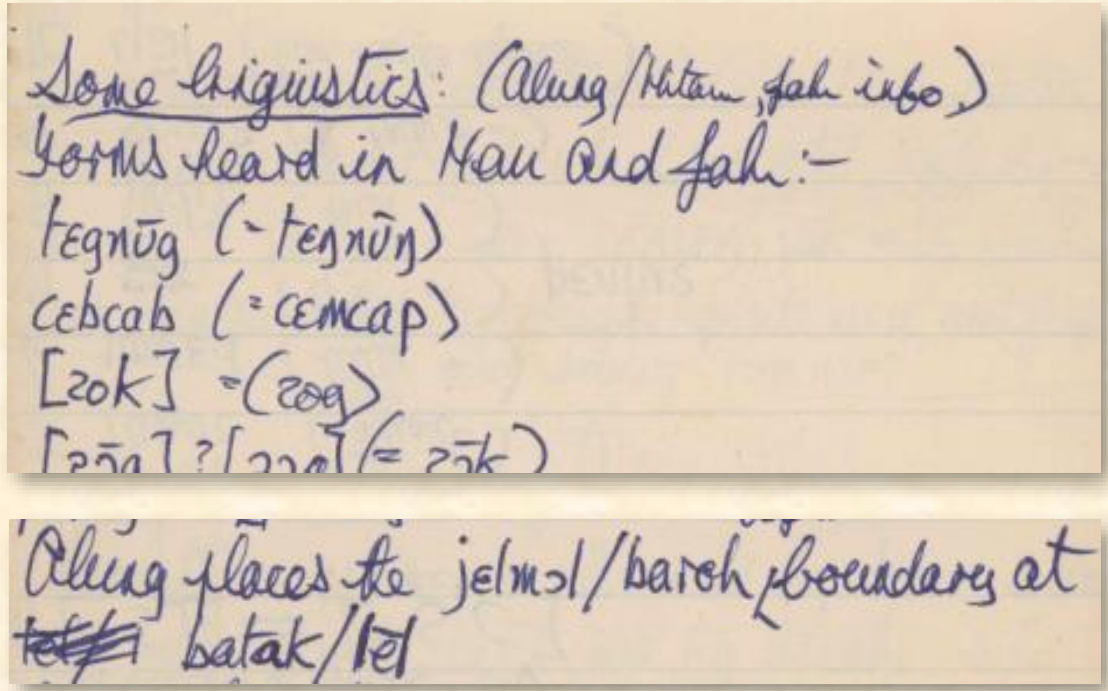 Some linguistics: (Alung/Hitam, Jah info.)
Forms heard in Mau and Jah:-
tɛgnūg (= tɛŋnūŋ)
cɛbcab (= cɛmcap)
[ʔok] = (ʔog)
[ʔɔ̄g] ? [ʔɔg] (= ʔɔ̄k)
Alung places the jɛlmɔl/barɔh boundary at
batak/lēl